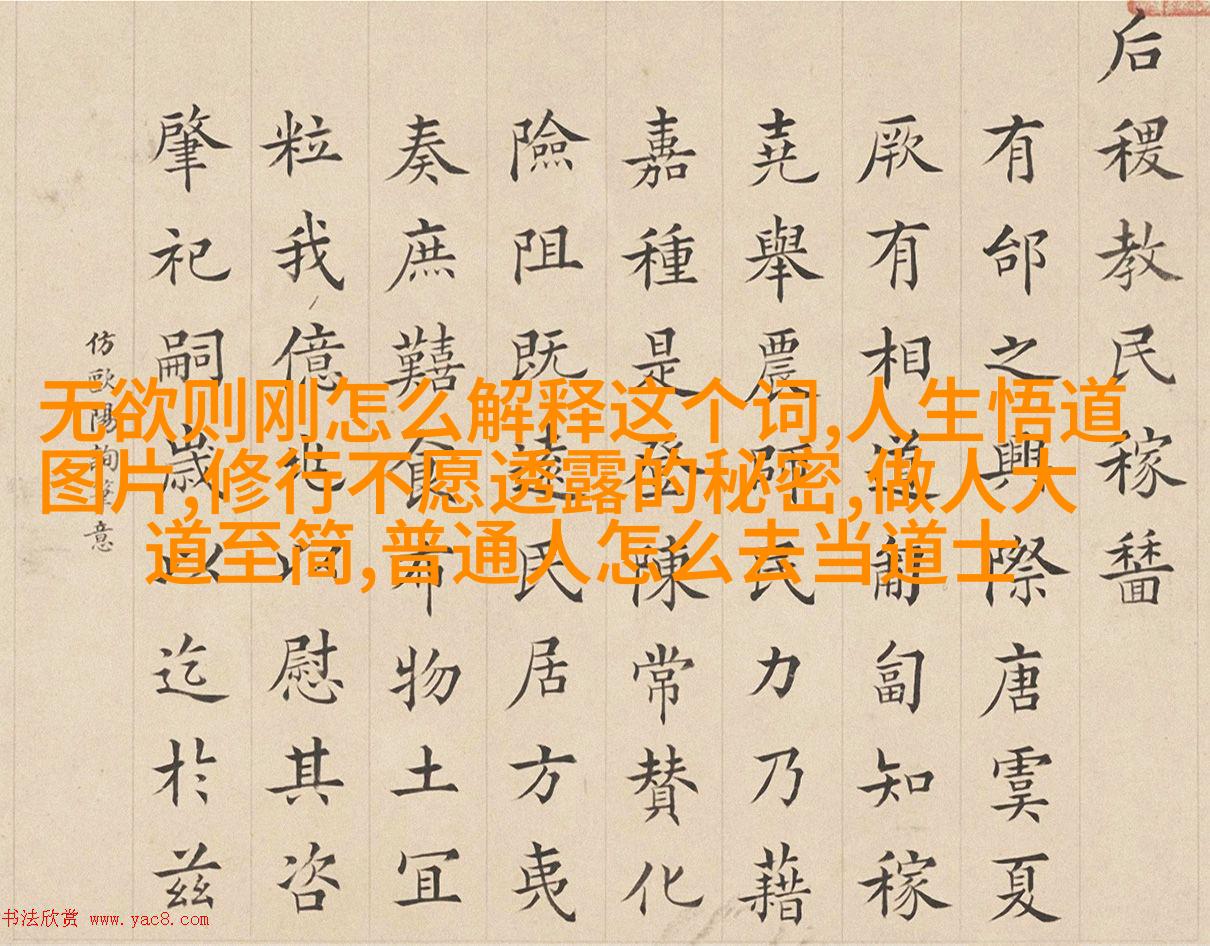 后稷教民稼穡
有邰之興際唐虞夏
厥有相道匍匐知稼
堯舉農師民力乃藉
嘉種是陳常贊化
險阻既民居方夷
奏庶囏食布物土宜
粒我億以慰其咨
肇祀嗣歲以迄於茲
仿歐陽詢筆意
无欲则刚怎么解释这个词,人生悟道
图片,修行不愿透露的秘密,做人大
道至简,普通人怎么去当道士
书法欣赏 www.yac8.com